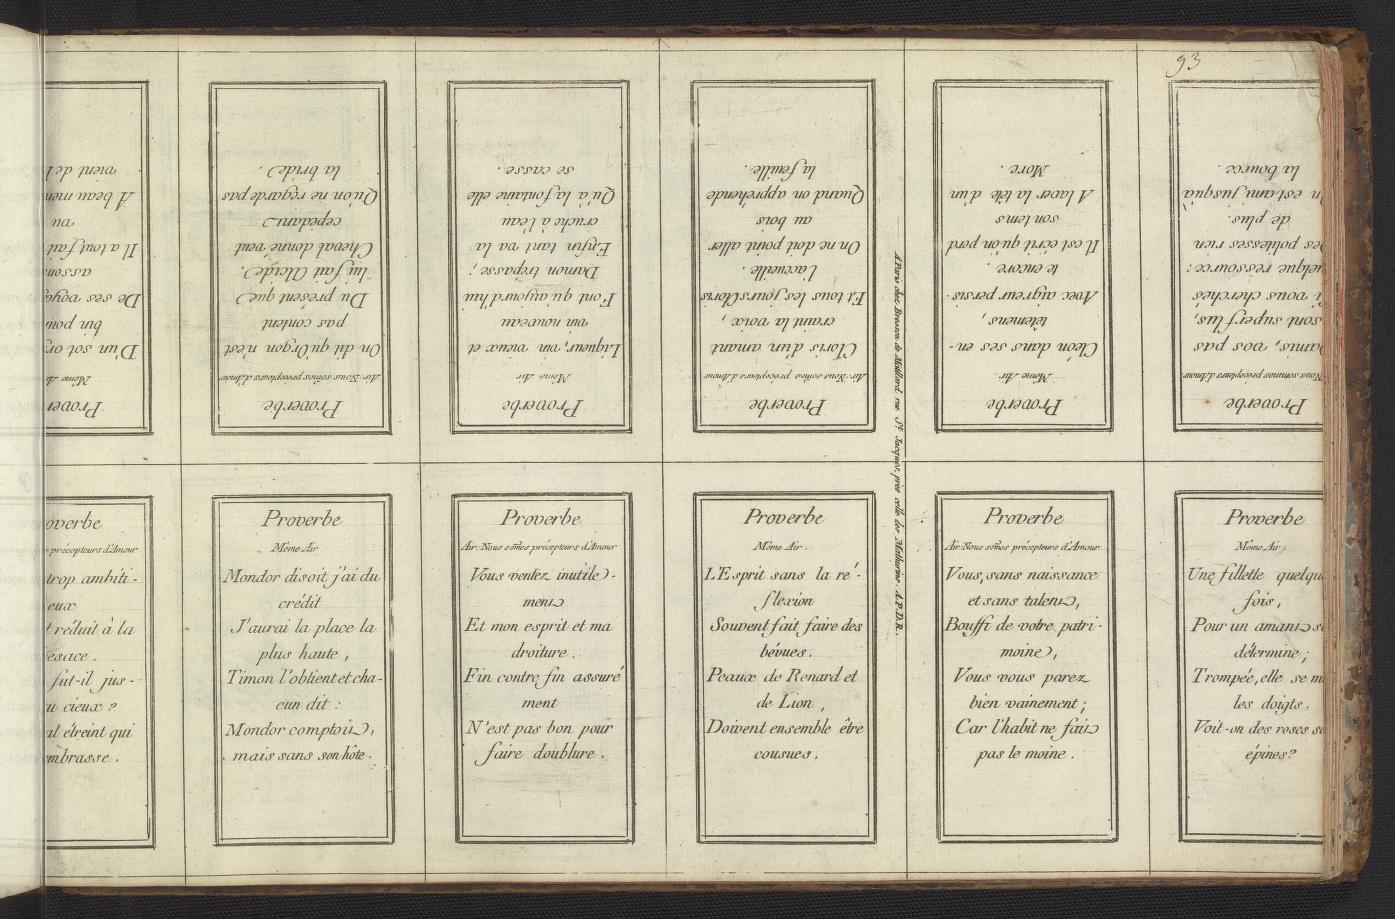 93
Proverbe
Air. Nous som̃es précepteurs d'Amour
On dit qu'Orgon n'est
pas content
Du présent que
lui fait Alcide,
Cheval donné veut
cépédant
Qu'on ne regarde pas
la bride.
Proverbe
Même Air
Liqueur, vin vieux et
vin nouveau
Font qu'aujourd'hui
Damon trépasse ;
Enfin tant va la
cruche à l'eau
Qu'à la fontaine elle
se casse.
Proverbe
Air. Nous som̃es précepteurs d'Amour
Cloris d'un amant
craint la voix,
Et tous les jours Cloris
l'accueille.
On ne doit point aller
au bois
Quand on apréhende
la feuille.
Proverbe
Même Air
Cléon dans ses en-
têtemens,
Avec aigreur persis-
te encore.
Il est écrit qu'on perd
son tems
A laver la tête d'un
More.
Proverbe
Nous sommes précepteurs d'Amour
Damis, vos pas
sont superflus,
Si vous cherchés
quelque ressource :
des politesses rien
de plus.
On est ami jusqu'à
la bource.
Proverbe
Même Air
D'un sot
bin
De ses
Il a tout
vu
A beau
vient de
A Paris chez Basson de Maillard rue St. Jacques, près celle des Mathurins. A.P.D.R.
overbe
précepteurs d'Amour
trop ambiti-
eux
t réduit à la
esace.
fut-il jus-
u cieux ?
al étreint qui
mbrasse.
Proverbe
Même Air
Mondor disoit j'ai du
crédit
J'aurai la place la
plus haute,
Timon l'obtient et cha-
cun dit :
Mondor comptoit,
mais sans son hôte.
Proverbe
Air. Nous som̃es précepteurs d'Amour
Vous ventez inutile-
ment
Et mon esprit et ma
droiture.
Fin contre fin assuré
ment
N'est pas bon pour
faire doublure.
Proverbe
Même Air.
L'Esprit sans la ré-
flexion
Souvent fait faire des
bévues.
Peaux de Renard et
de Lion,
Doivent ensemble être
cousues.
Proverbe
Air. Nous som̃es précepteurs d'Amour
Vous, sans naissance
et sans talent,
Bouffi de votre patri-
moine,
Vous vous parez
bien vainement ;
Car l'habit ne fait
pas le moine.
Proverbe
Même Air.
Une fillette quelqu
fois,
Pour un amant se
détermine ;
Trompée, elle se m
les doigts.
Voit-on des roses s
épines ?